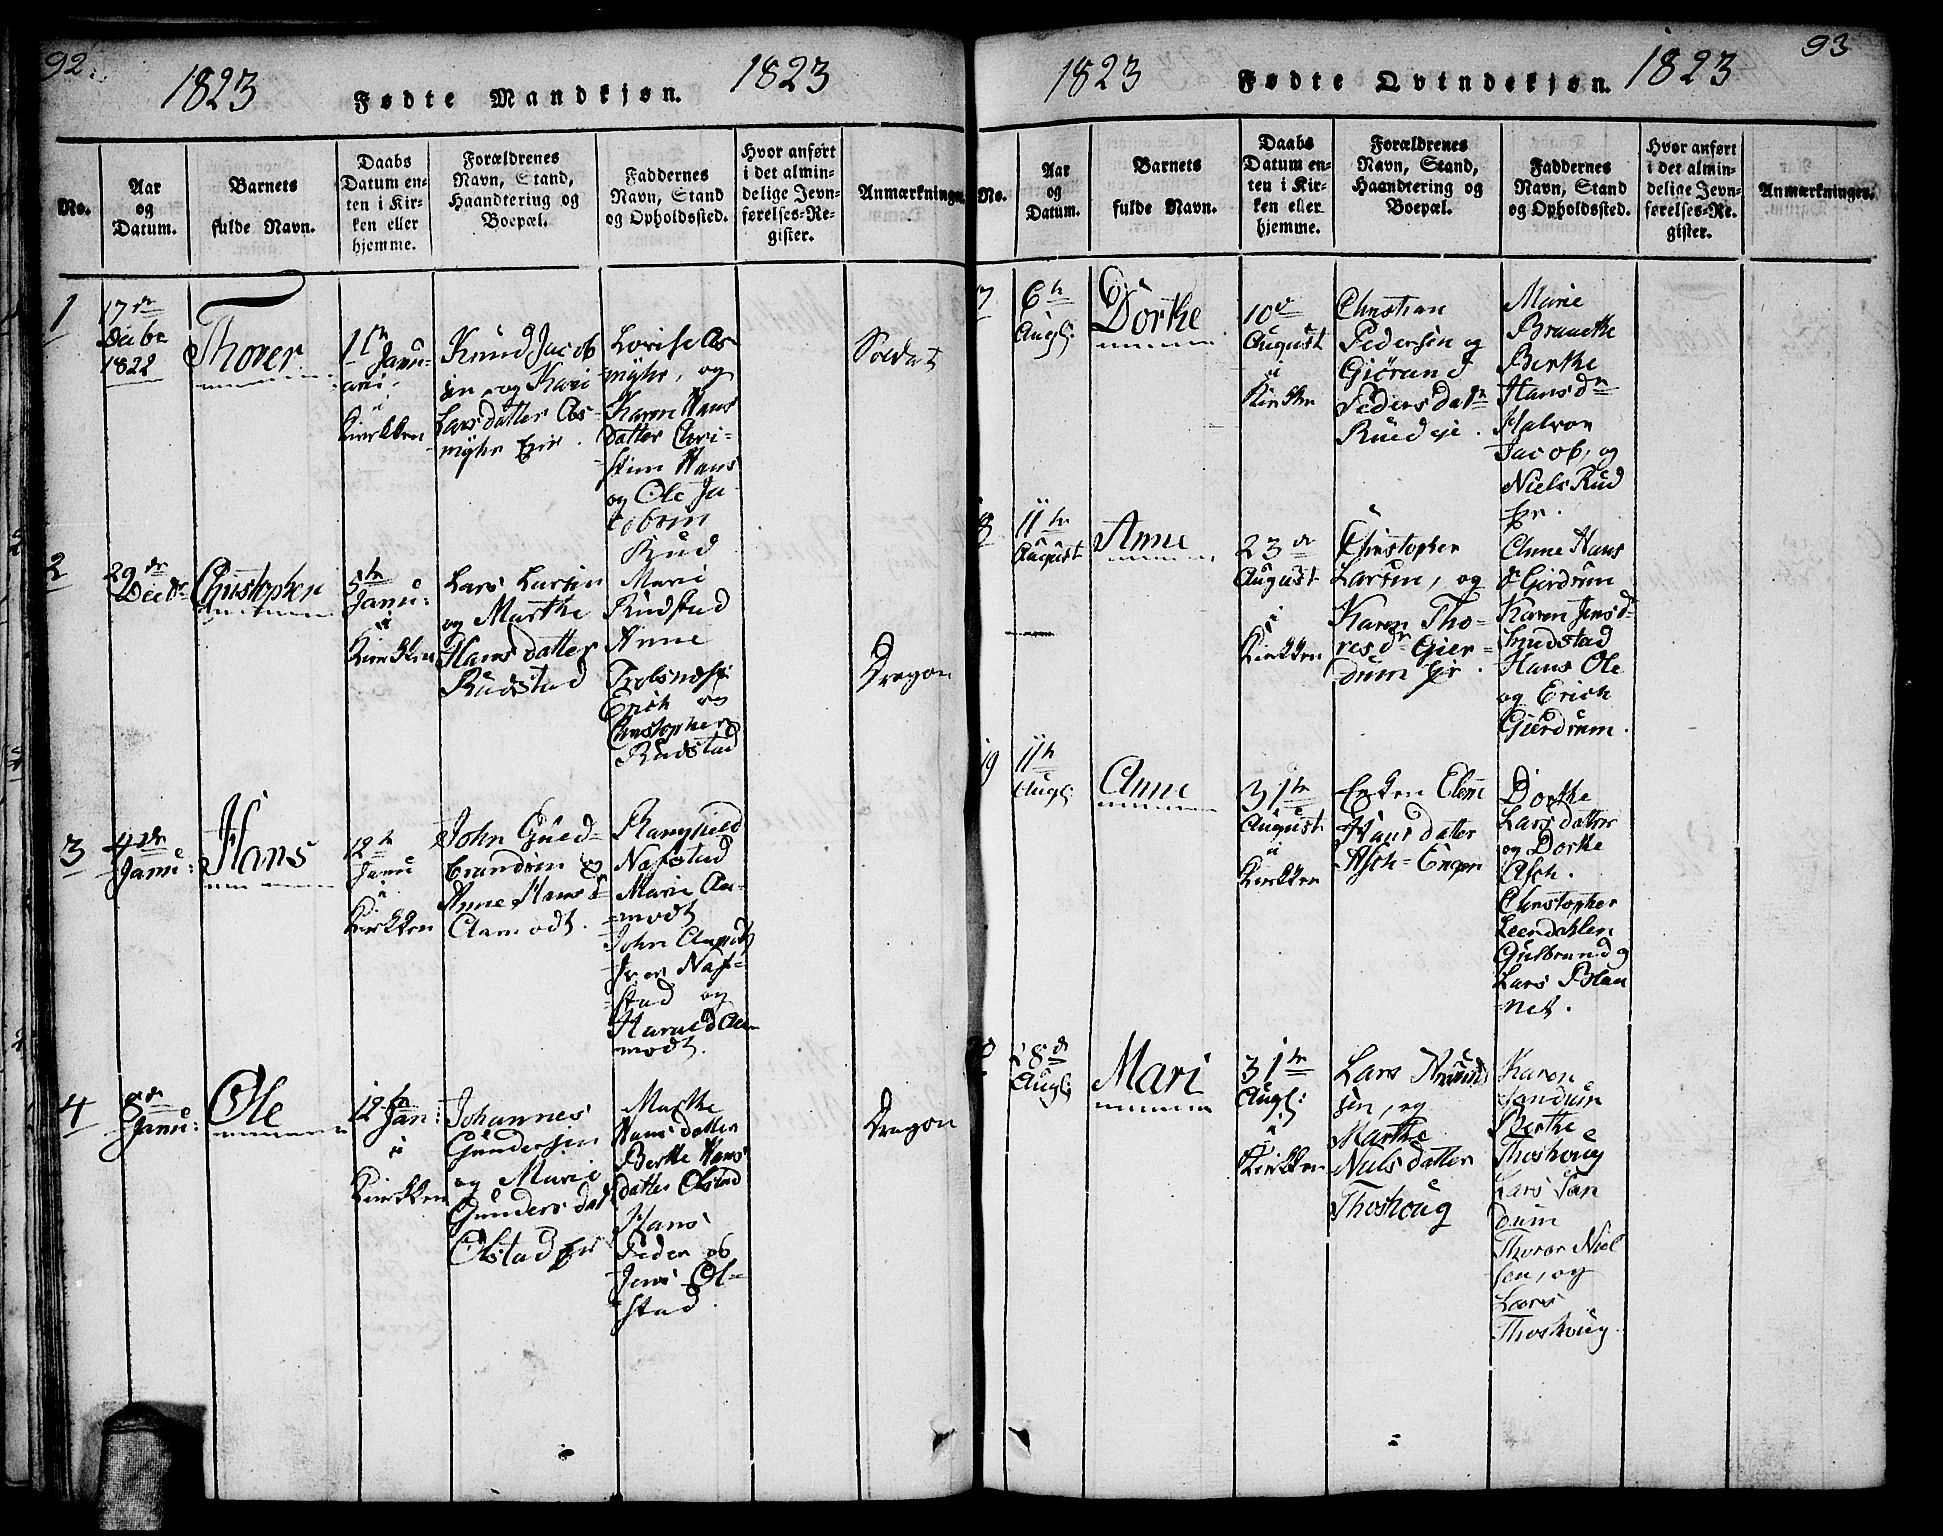 92.
1823
Fødte Mandkjøn.
1823
No.
Aar
og
Datum.
Barnets
fulde Navn.
Daabs
Datum en-
ten i Kir-
ken eller
hjemme.
Forældrenes
Navn, Stand,
Haandtering og
Boepæl.
Faddernes
Navn, Stand
og Opholdssted.
Hvor anført
i det almin-
delige Jevn-
førelses-Re-
gister.
Anmærkninger.
1
17de
1822
Thorer
1te Janu-
ari
i
Kirkken
Knud Jacob
sen og Kari
Larsdatter As-
myhr Eier.
Lovise As-
myhr, og
Karen Hans
datter Chri-
stine Hans
og Ole Ja-
cobsen
Rud
Soldat
2
29de
Decbr
Christopher
5te
Janu:
i
Kirkken
Lars Larsen
og Marthe
Hansdatter
Rudstad
Mari
Rudstad
Anne
Erich og
Christopher
Rudstad
Dragon
3
4de
Janu:
Hans
12te
Janu
i
Kirkken
John Gued-
brandsen og
Anne Hansd
Aamodt.
Nafstad
Marie Aa-
modt
John
Naf-
stad og
Harald Aa-
modt.
4
8de
Janu:
Ole
12te Jan:
i
Kirkken
Johannes
Gundersen
og Marie
Gundersdat
Olstad Eier
Marthe
Hansdatter
Berthe Hans
datter Olstad
Hans
Peder og
Jens Ol-
stad.
Dragon
93
1823
Fødte Qvindekjøn.
1823
No.
Aar
og
Datum.
Barnets
fulde Navn.
Daabs
Datum en-
ten i Kir-
ken eller
hjemme.
Forældrenes
Navn, Stand,
Haandtering og
Boepæl.
Faddernes
Navn, Stand
og Opholdssted.
Hvor anført
i det almin-
delige Jevn-
førelses-Re-
gister.
Anmærkninger.
7
6te
Augl:
Dorthe
10de
August
i
Kirkken
Christian
Pedersen og
Giørand
Pedersdatr
Rud
Marie
Berthe
Hansdr
Halvor
Jacob, og
Niels Rud
8
11te
August
Anne
23de
August
i
Kirkken
Christopher
Larsen, og
Karen Tho-
resdr Gier-
drum Eier.
Anne Hans
dr Gierdrum
Karen Jensd-
Rudstad
Hans Ole
og Erich
Gierdrum.
19
11te
Augl:
Anne
31te
August
i
Kirkken
Enken Elene
Hansdatter
Asch-Engen
Dorthe
Larsdatter
og Dorthe
Asch.
Christopher
Leendahlen
Gulbrand og
Lars Plan
net.
28de
Augl:
Mari
31te
Augl:
i
Kirkken
Lars
sen, og
Marthe
Nielsdatter
Thoshoug
Karen
Sandum
Berthe
Thoshoug
Lars San
dum
Thorer Niel
sen, og
Lars
Thoshoug.